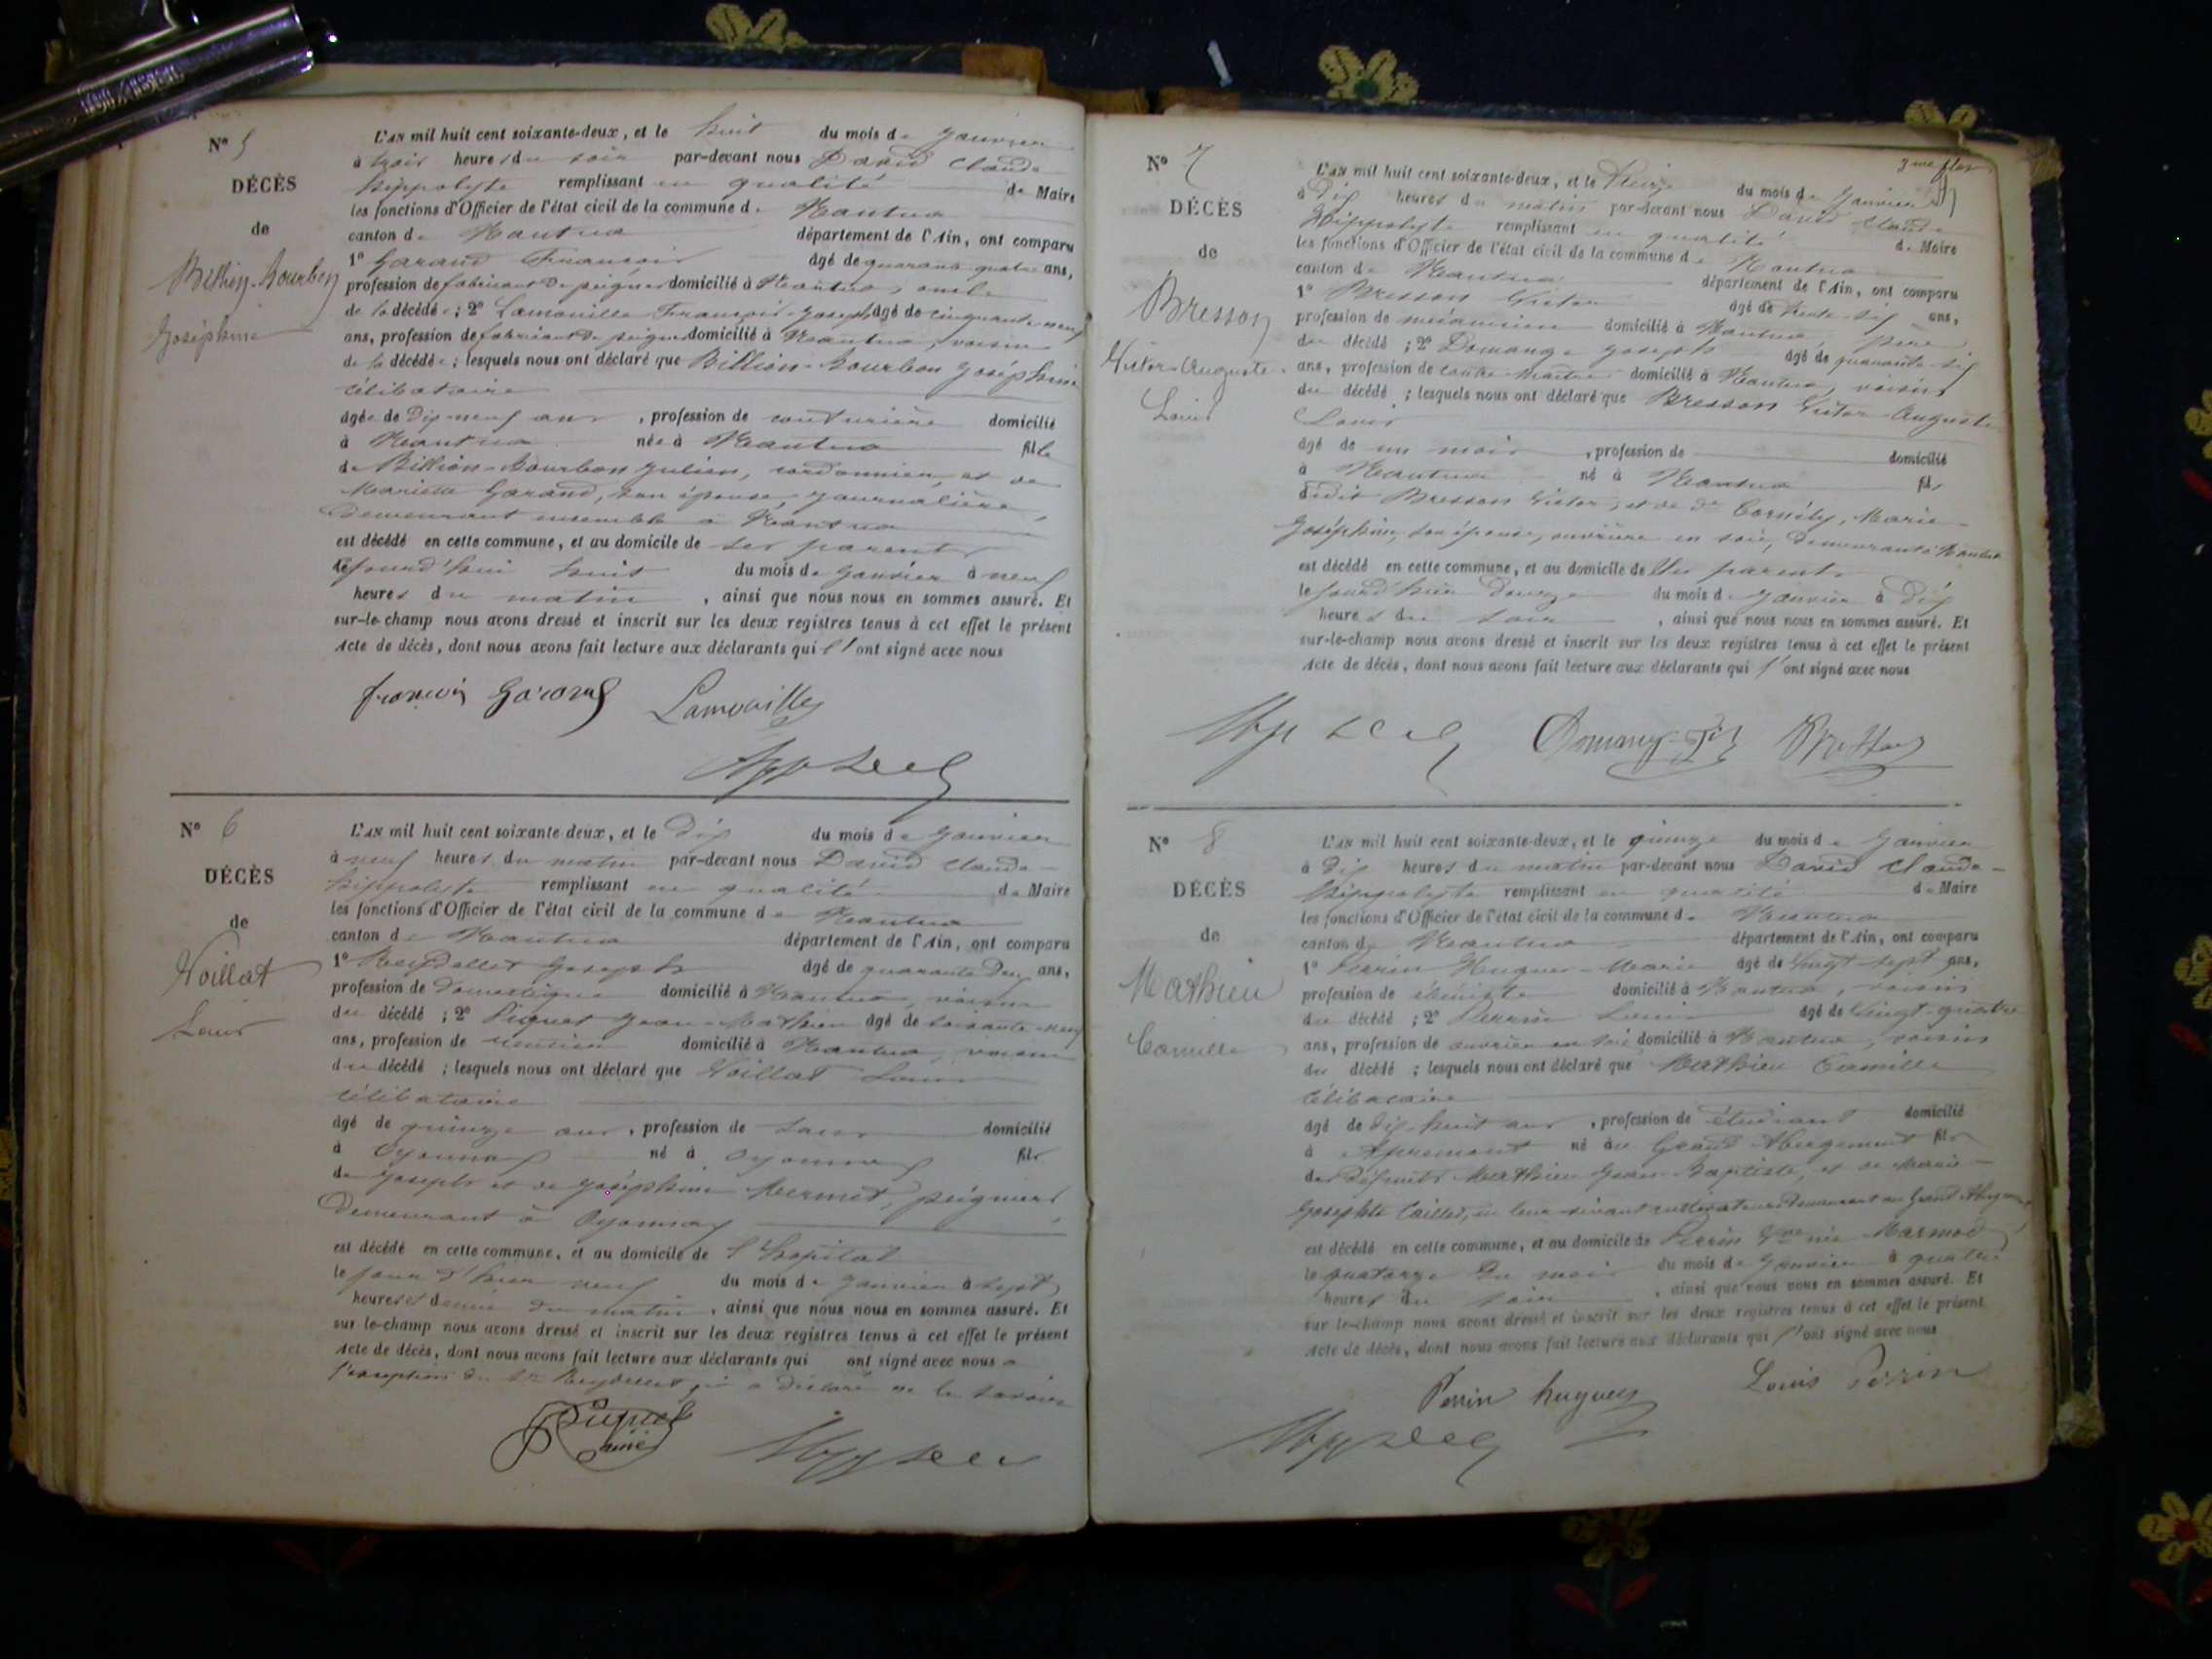 N° 5
DÉCÈS
de
Billion-Bourbon
Joséphine
L'AN mil huit cent soixante-deux, et le huit du mois de Janvier
à trois heures du soir par-devant nous David Claude
hippolyte remplissant en qualité de Maire
les fonctions d'Officier de l'état civil de la commune de Nantua
canton de Nantua département de l'Ain, ont comparu
1° Garand François âgé de quarante quatre ans,
profession de fabricant de peignes domicilié à Nantua, oncle
de la décédée ; 2° Lamouille François-Joseph âgé de cinquante neuf
ans, profession de fabricant de peignes domicilié à Nantua, voisin
de la décédée ; lesquels nous ont déclaré que Billion-Bourbon Joséphine
célibataire
âgée de dix-neuf ans , profession de couturière domicilié
à Nantua née à Nantua fille
de Billion-Bourbon Julien, cordonnier, et de
Mariette Garand, son épouse, journalière,
demeurant ensemble à Nantua
est décédé en cette commune, et au domicile de ses parents
le jourd'hui huit du mois de Janvier à neuf
heures du matin , ainsi que nous nous en sommes assuré. Et
sur-le-champ nous avons dressé et inscrit sur les deux registres tenus à cet effet le présent
Acte de décès, dont nous avons fait lecture aux déclarants qui l'ont signé avec nous
françois Garand Lamouille
N° 6
DÉCÈS
de
Voillat
Louis
L'AN mil huit cent soixante-deux, et le dix du mois de Janvier
à neuf heures du matin par-devant nous David Claude-
hippolyte remplissant en qualité de Maire
les fonctions d'Officier de l'état civil de la commune de Nantua
canton de Nantua département de l'Ain, ont comparu
1° Reydellet Joseph âgé de quarante deux ans,
profession de domestique domicilié à Nantua, voisin
du décédé ; 2° Piquet Jean-Mathieu âgé de soixante-neuf
ans, profession de rentier domicilié à Nantua, voisin
du décédé ; lesquels nous ont déclaré que Voillat Louis
célibataire
âgé de quinze ans , profession de sans domicilié
à Oyonnax né à Oyonnax fils
de Joseph et de Joséphine Mermet, peigniers
demeurant à Oyonnax
est décédé en cette commune, et au domicile de l'hopital
le jour d'hier neuf du mois de Janvier à sept
heures et demie du matin , ainsi que nous nous en sommes assuré. Et
sur le-champ nous avons dressé et inscrit sur les deux registres tenus à cet effet le présent
Acte de décès, dont nous avons fait lecture aux déclarants qui ont signé avec nous à
l'exception du Sr Reydellet qui a déclaré ne le savoir
Piquet
ainé
N° 7
DÉCÈS
de
Bresson
Victor-Auguste-
Louis
L'AN mil huit cent soixante-deux, et le treize du mois de Janvier
à Dix heures du matin par-devant nous David Claude
Hippolyte remplissant en qualité de Maire
les fonctions d'Officier de l'état civil de la commune de Nantua
canton de Nantua département de l'Ain, ont comparu
1° Bresson Victor âgé de trente-six ans,
profession de mécanicien domicilié à Nantua, père
du décédé ; 2° Domange Joseph âgé de quarante-six
ans, profession de contre-maître domicilié à Nantua, voisin
du décédé ; lesquels nous ont déclaré que Bresson Victor-Auguste
Louis
âgé de un mois , profession de domicilié
à Nantua né à Nantua fils
dudit Bresson Victor, et de de Cornély, Marie-
Joséphine, son épouse, ouvrière en soie, demeurant à Nantua
est décédé en cette commune, et au domicile de ses parents
le jourd'hier douze du mois de Janvier à dix
heures du soir , ainsi que nous nous en sommes assuré. Et
sur-le-champ nous avons dressé et inscrit sur les deux registres tenus à cet effet le présent
Acte de décès, dont nous avons fait lecture aux déclarants qui l'ont signé avec nous
N° 8
DÉCÈS
de
Mathieu
Camille
L'AN mil huit cent soixante-deux, et le quinze du mois de Janvier
à dix heures du matin par-devant nous David Claude-
Hippolyte remplissant en qualité de Maire
les fonctions d'Officier de l'état civil de la commune de Nantua
canton de Nantua département de l'Ain, ont comparu
1° Perrin Hugues-Marie âgé de vingt-sept ans,
profession de domicilié à Nantua, voisin
du décédé ; 2° Perrin Louis âgé de vingt-quatre
ans, profession de ouvrier en soie domicilié à Nantua, voisin
du décédé ; lesquels nous ont déclaré que Mathieu Camille
célibataire
âgé de dix-huit ans , profession de étudiant domicilié
à Apremont né au Grand Abergement fils
des défunts Mathieu Jean-Baptiste, et de Marie-
Josephte en leur vivant cultivateurs demeurant au Grand Abergement
est décédé en cette commune, et au domicile de Perrin Vve née Marmod
le quatorze du mois du mois de Janvier à quatre
heures du soir , ainsi que nous nous en sommes assuré. Et
sur le-champ nous avons dressé et inscrit sur les deux registres tenus à cet effet le présent
Acte de décès, dont nous avons fait lecture aux déclarants qui l'ont signé avec nous
Perrin hugues Louis Perrin